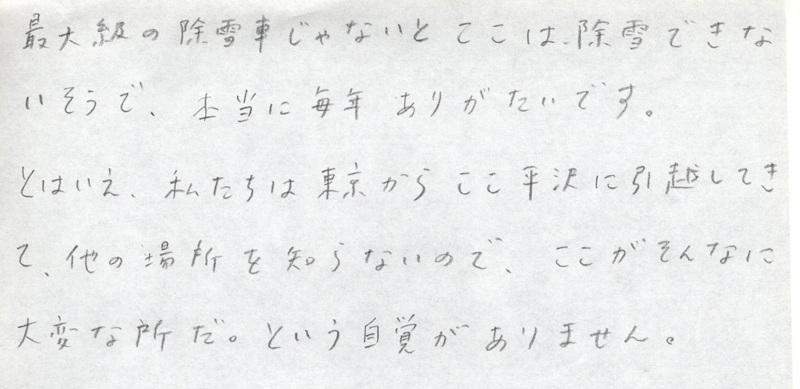 最大級の除雪車じゃないとここは、除雪できな
いそうで、本当に毎年ありがたいです。
とはいえ、私たちは東京からここ平沢に引越してき
て、他の場所を知らないので、ここがそんなに
大変な所だ。という自覚がありません。